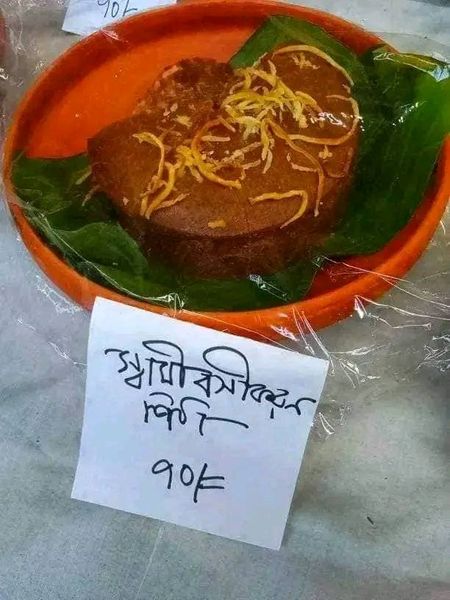 ৭০/=
স্বামী বসীকরন
পিঠা
৭০/=